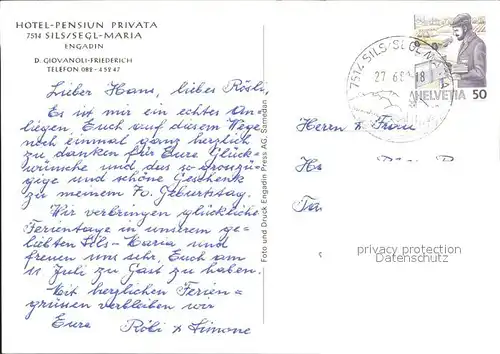 HOTEL-PENSIUN PRIVATA
7514 SILS/SEGL-MARIA
ENGADIN
D. GIOVANOLI-FRIEDERICH
TELEFON 082 - 4 52 47
Lieber Hans, liebes Rösli,
Es ist mir ein echtes An-
liegen, Euch auf diesem Wege
noch einmal ganz herzlich
zu danken für Eure Glück-
wünsche und das so grosszü-
gige und schöne Geschenk
zu meinem 70. Geburtstag.
Wir verbringen glückliche
Ferientage in unserem ge-
liebten Sils-Maria und
freuen uns sehr, Euch am
11. Juli zu Gast zu haben.
Mit herzlichen Ferien-
grüssen verbleiben wir
Eure Röbi & Simone
Foto und Druck Engadin Press AG, Samedan
7514 SILS/SEGL MARIA
27.6.
HELVETIA 50
Herrn & Frau
privacy protection
Datenschutz